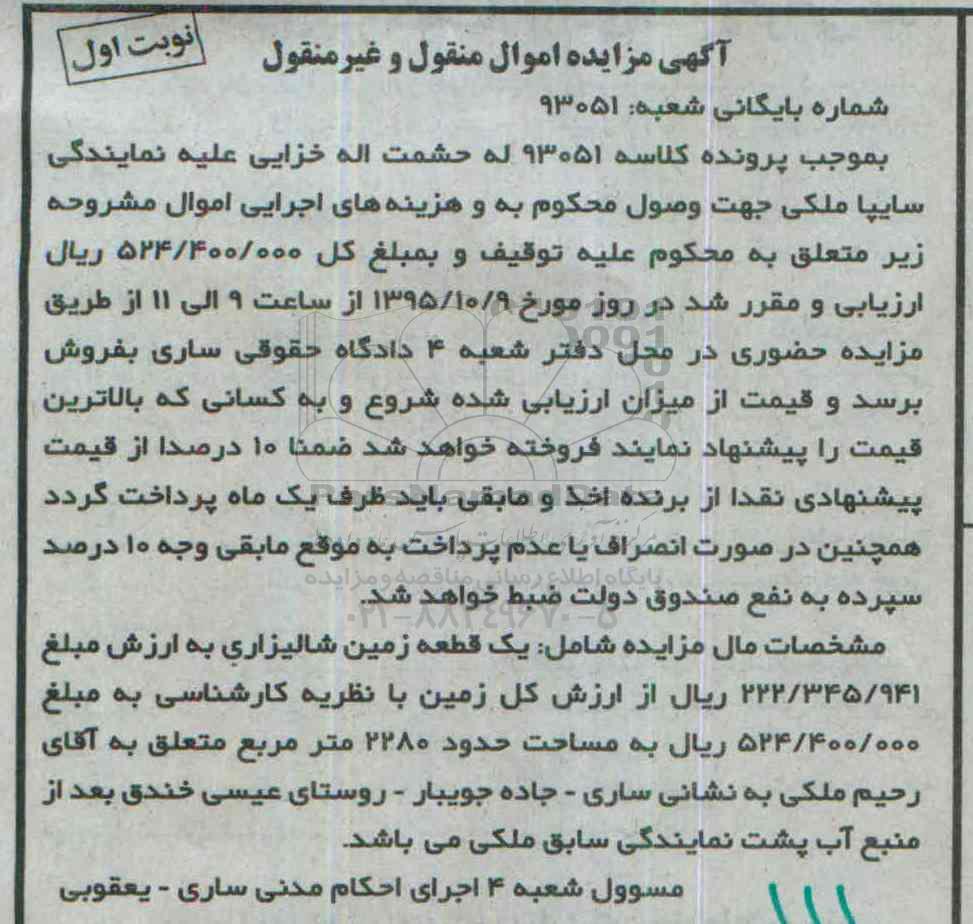 نوبت اول
آگهی مزایده اموال منقول و غیرمنقول
شماره بایگانی شعبه: ۹۳۰۵۱
بموجب پرونده کلاسه ۹۳۰۵۱ له حشمت اله خزایی علیه نمایندگی
سایپا ملکی جهت وصول محکوم به و هزینه های اجرایی اموال مشروحه
زیر متعلق به محکوم علیه توقیف و بمبلغ کل ۵۲۴/۴۰۰/۰۰۰ ریال
ارزیابی و مقرر شد در روز مورخ ۱۳۹۵/۱۰/۹ از ساعت ۹ الی ۱۱ از طریق
مزایده حضوری در محل دفتر شعبه ۴ دادگاه حقوقی ساری بفروش
برسد و قیمت از میزان ارزیابی شده شروع و به کسانی که بالاترین
قیمت را پیشنهاد نمایند فروخته خواهد شد ضمنا ۱۰ درصدا از قیمت
پیشنهادی نقدا از برنده اخذ و مابقی باید ظرف یک ماه پرداخت گردد
همچنین در صورت انصراف یا عدم پرداخت به موقع مابقی وجه ۱۰ درصد
پایگاه اطلاع رسانی مناقصه و مزایده
سپرده به نفع صندوق دولت ضبط خواهد شد.
۰۲۱-۸۸۳۴۹۶۷۰-۵
مشخصات مال مزایده شامل: یک قطعه زمین شالیزاری به ارزش مبلغ
۲۲۲/۳۴۵/۹۴۱ ریال از ارزش کل زمین با نظریه کارشناسی به مبلغ
۵۲۴/۴۰۰/۰۰۰ ریال به مساحت حدود ۲۲۸۰ متر مربع متعلق به آقای
رحیم ملکی به نشانی ساری - جاده جویبار - روستای عیسی خندق بعد از
منبع آب پشت نمایندگی سابق ملکی می باشد.
مسوول شعبه ۴ اجرای احکام مدنی ساری - یعقوبی